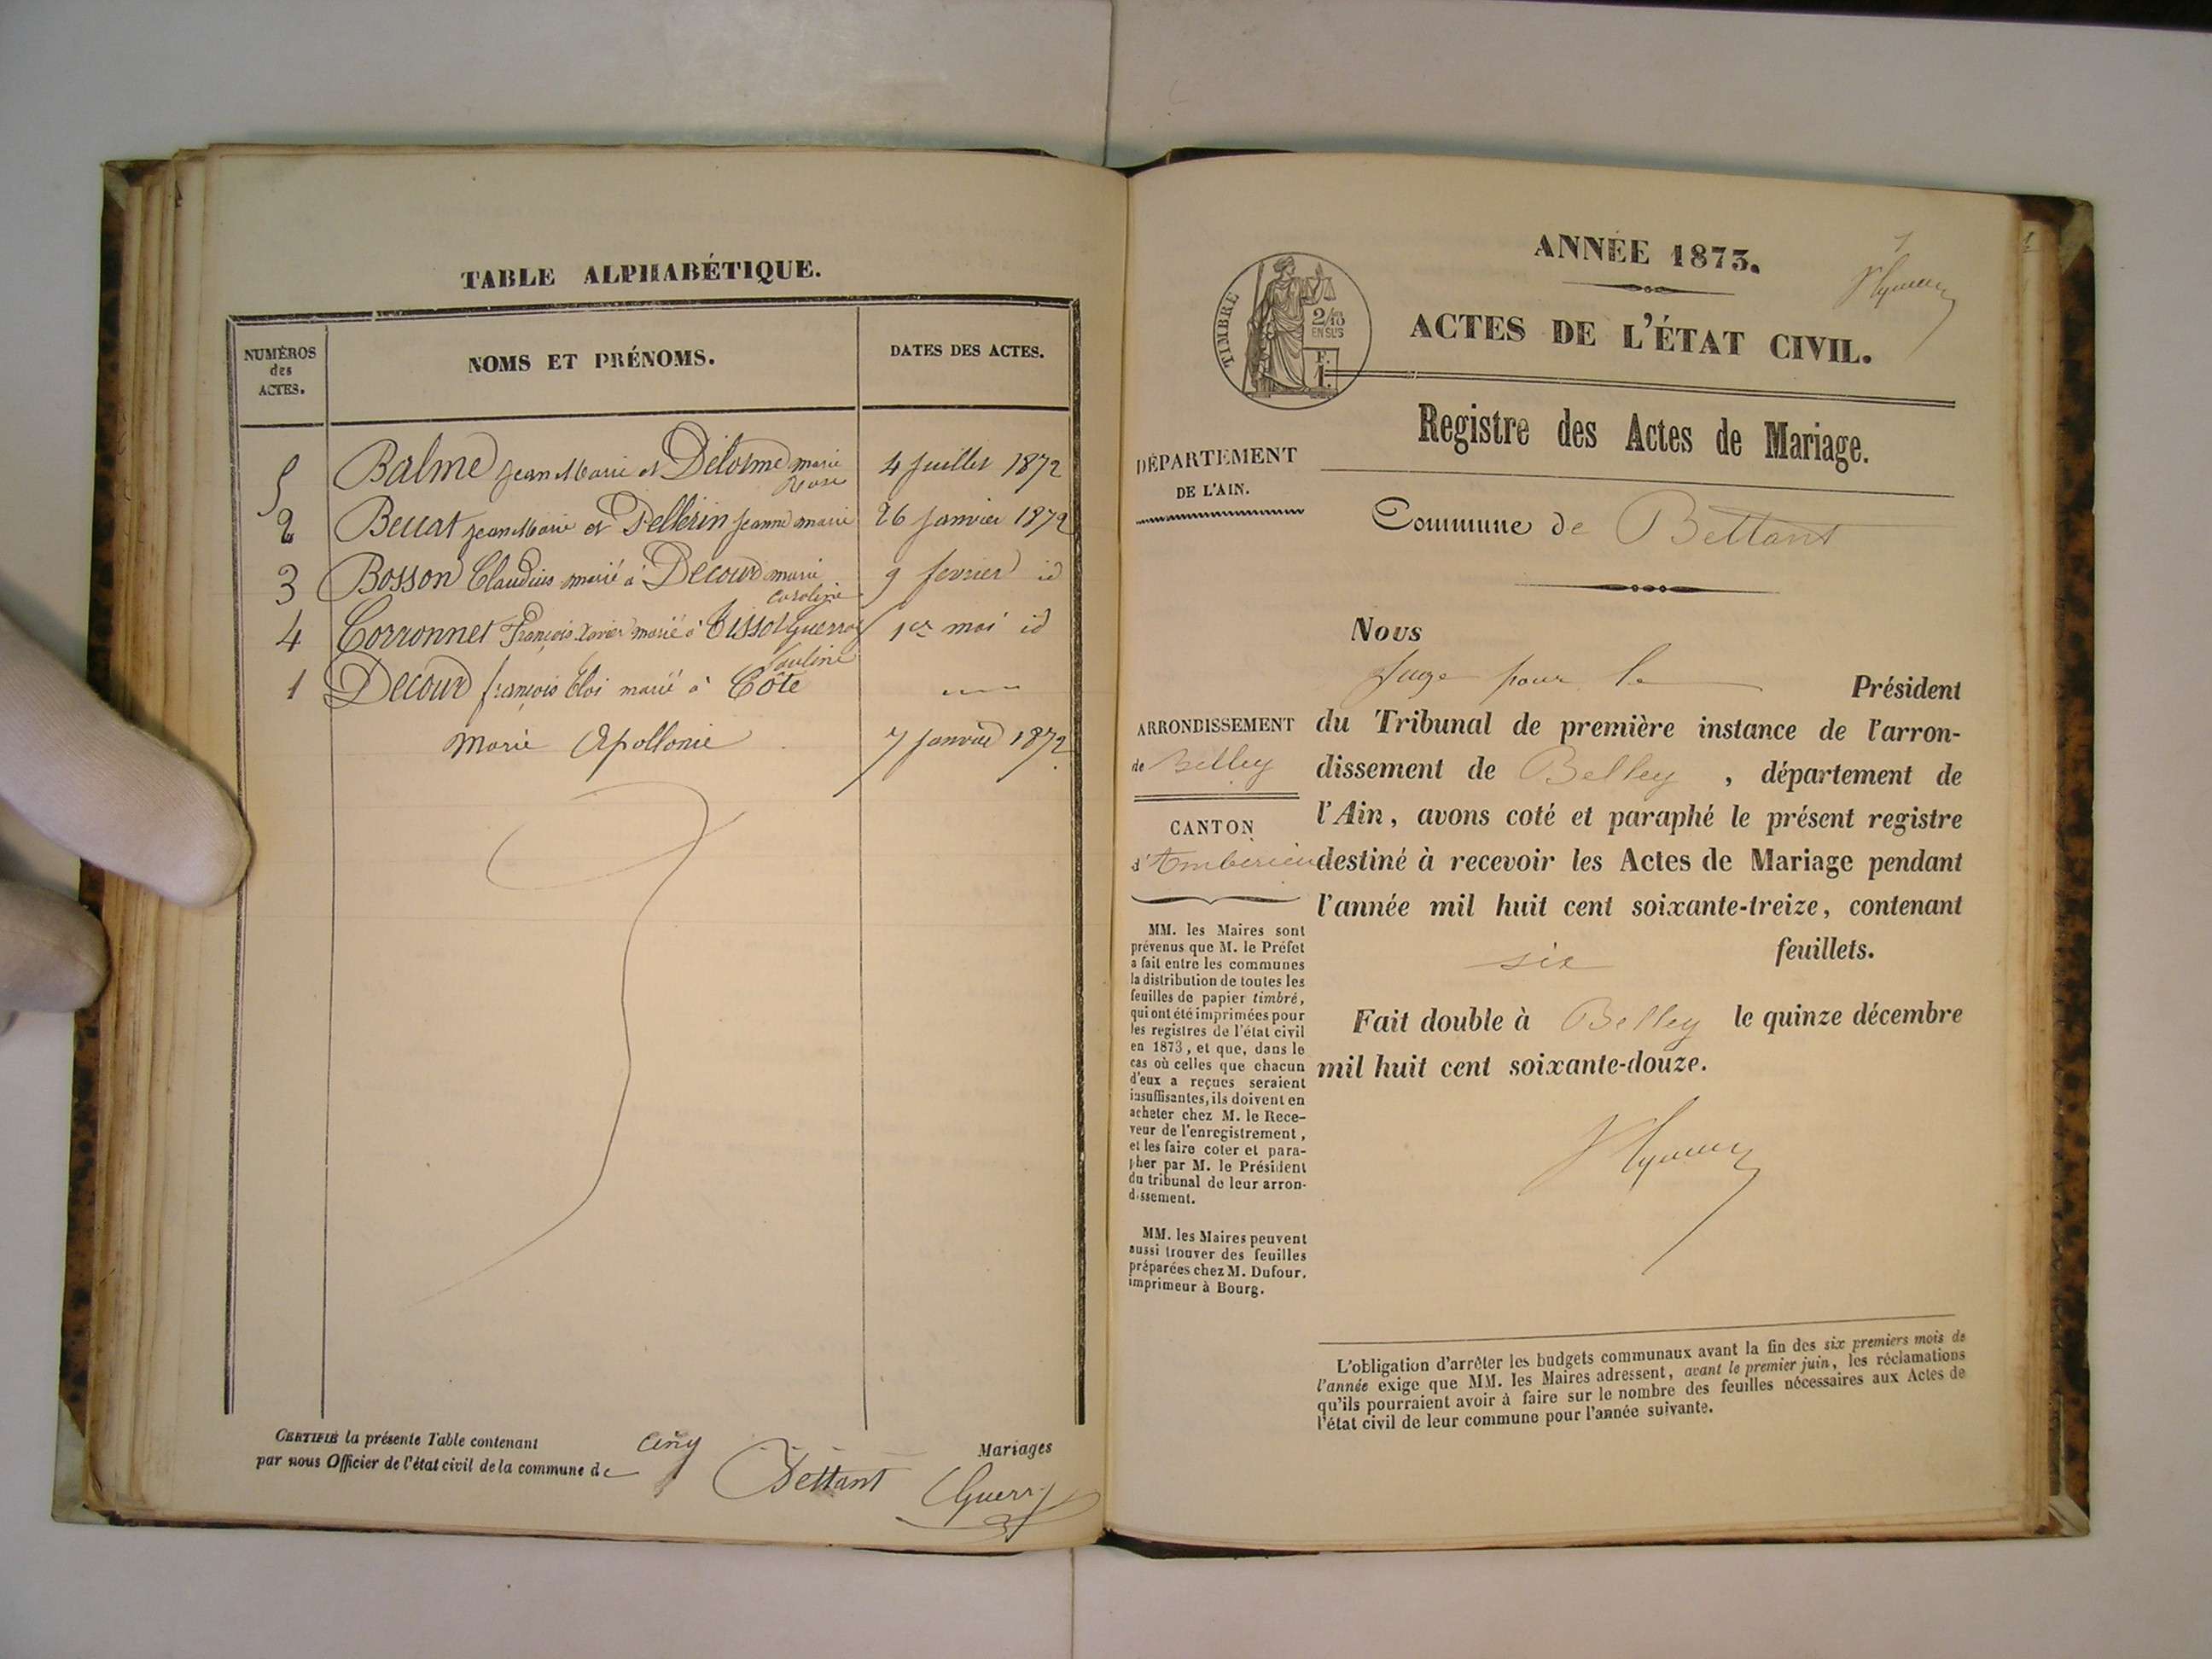 TABLE ALPHABÉTIQUE.
NUMÉROS
des
ACTES.
NOMS ET PRÉNOMS.
DATES DES ACTES.
5 Balme Jean Marie et Delorme marie 4 Juillet 1872
Rose
2 Beuat Jean Marie et Pellerin Jeanne marie 26 Janvier 1872
3 Bosson Claudius marié à Decour marie 9 fevrier id
Caroline
4 Corronnet François Xavier marié à Tissot Guerraz 1er mai id
Pauline
1 Decour françois Eloi marié à Côte
Marie Apollonie 7 Janvier 1872
CERTIFIÉ la présente Table contenant cinq Mariages
par nous Officier de l'état civil de la commune de Bettant
Guerry
1
ANNÉE 1873.
TIMBRE
2/10
EN SUS
F.
1.
ACTES DE L'ÉTAT CIVIL.
Registre des Actes de Mariage.
DÉPARTEMENT
DE L'AIN.
Commune de Bettant
ARRONDISSEMENT
de Belley
CANTON
d'Ambérieu
MM. les Maires sont
prévenus que M. le Préfet
a fait entre les communes
la distribution de toutes les
feuilles de papier timbré,
qui ont été imprimées pour
les registres de l'état civil
en 1873, et que, dans le
cas où celles que chacun
d'eux a reçues seraient
insuffisantes, ils doivent en
acheter chez M. le Rece-
veur de l'enregistrement,
et les faire coter et para-
pher par M. le Président
du tribunal de leur arron-
dissement.
MM. les Maires peuvent
aussi trouver des feuilles
préparées chez M. Dufour,
imprimeur à Bourg.
Nous
Juge pour le Président
du Tribunal de première instance de l'arron-
dissement de Belley, département de
l'Ain, avons coté et paraphé le présent registre
destiné à recevoir les Actes de Mariage pendant
l'année mil huit cent soixante-treize, contenant
six feuillets.
Fait double à Belley le quinze décembre
mil huit cent soixante-douze.
L'obligation d'arrêter les budgets communaux avant la fin des six premiers mois de
l'année exige que MM. les Maires adressent, avant le premier juin, les réclamations
qu'ils pourraient avoir à faire sur le nombre des feuilles nécessaires aux Actes de
l'état civil de leur commune pour l'année suivante.